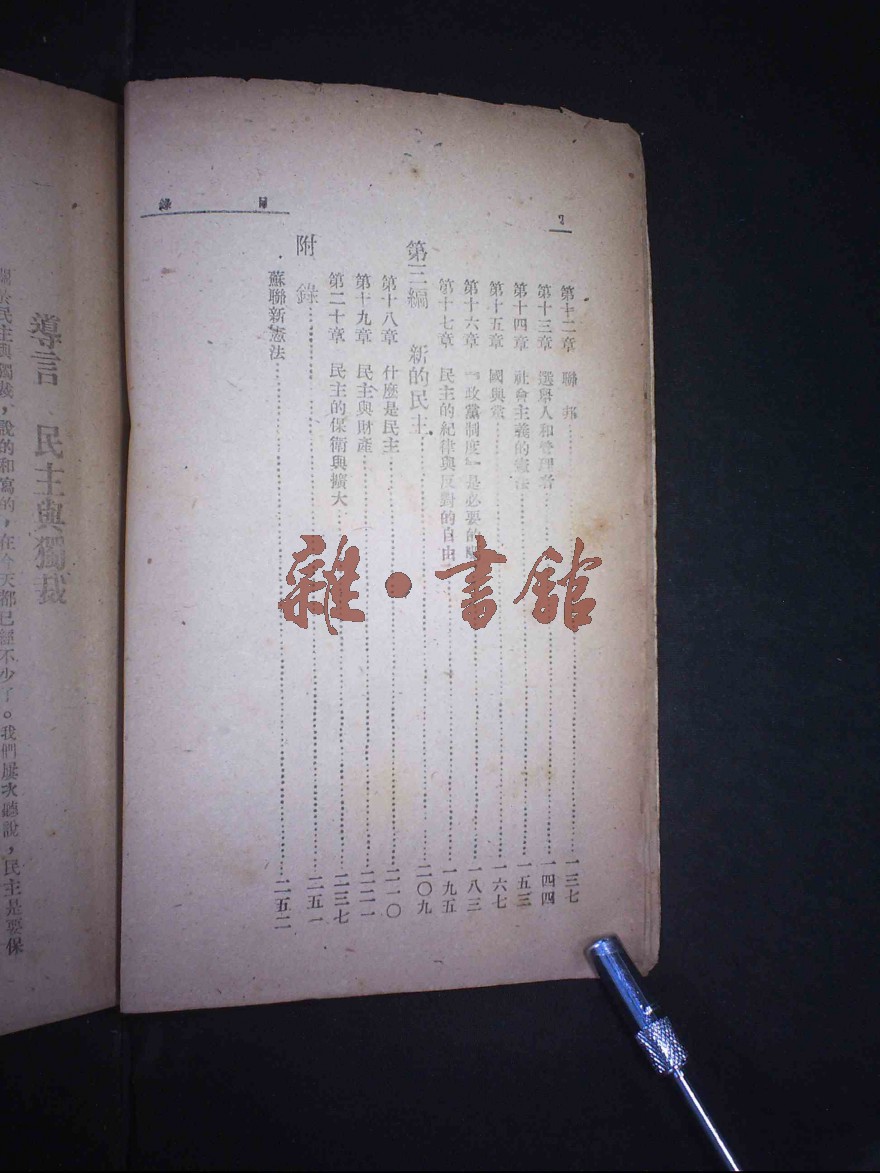 目　錄
2
第十二章　聯邦……一三七
第十三章　選舉人和管理者……一四四
第十四章　社會主義的憲法……一五三
第十五章　國與黨……一六七
第十六章　『政黨制度』是必要的……一八三
第十七章　民主的紀律與反對的自由……一九五
第三編　新的民主……二〇九
第十八章　什麼是民主……二一〇
第十九章　民主與財產……二二一
第二十章　民主的保衛與擴大……二三七
附　錄……二五一
蘇聯新憲法……二五二
雜·書館
導言　民主與獨裁
關於民主與獨裁，說的和寫的，在今天都已經不少了。我們屢次聽說，民主是要保